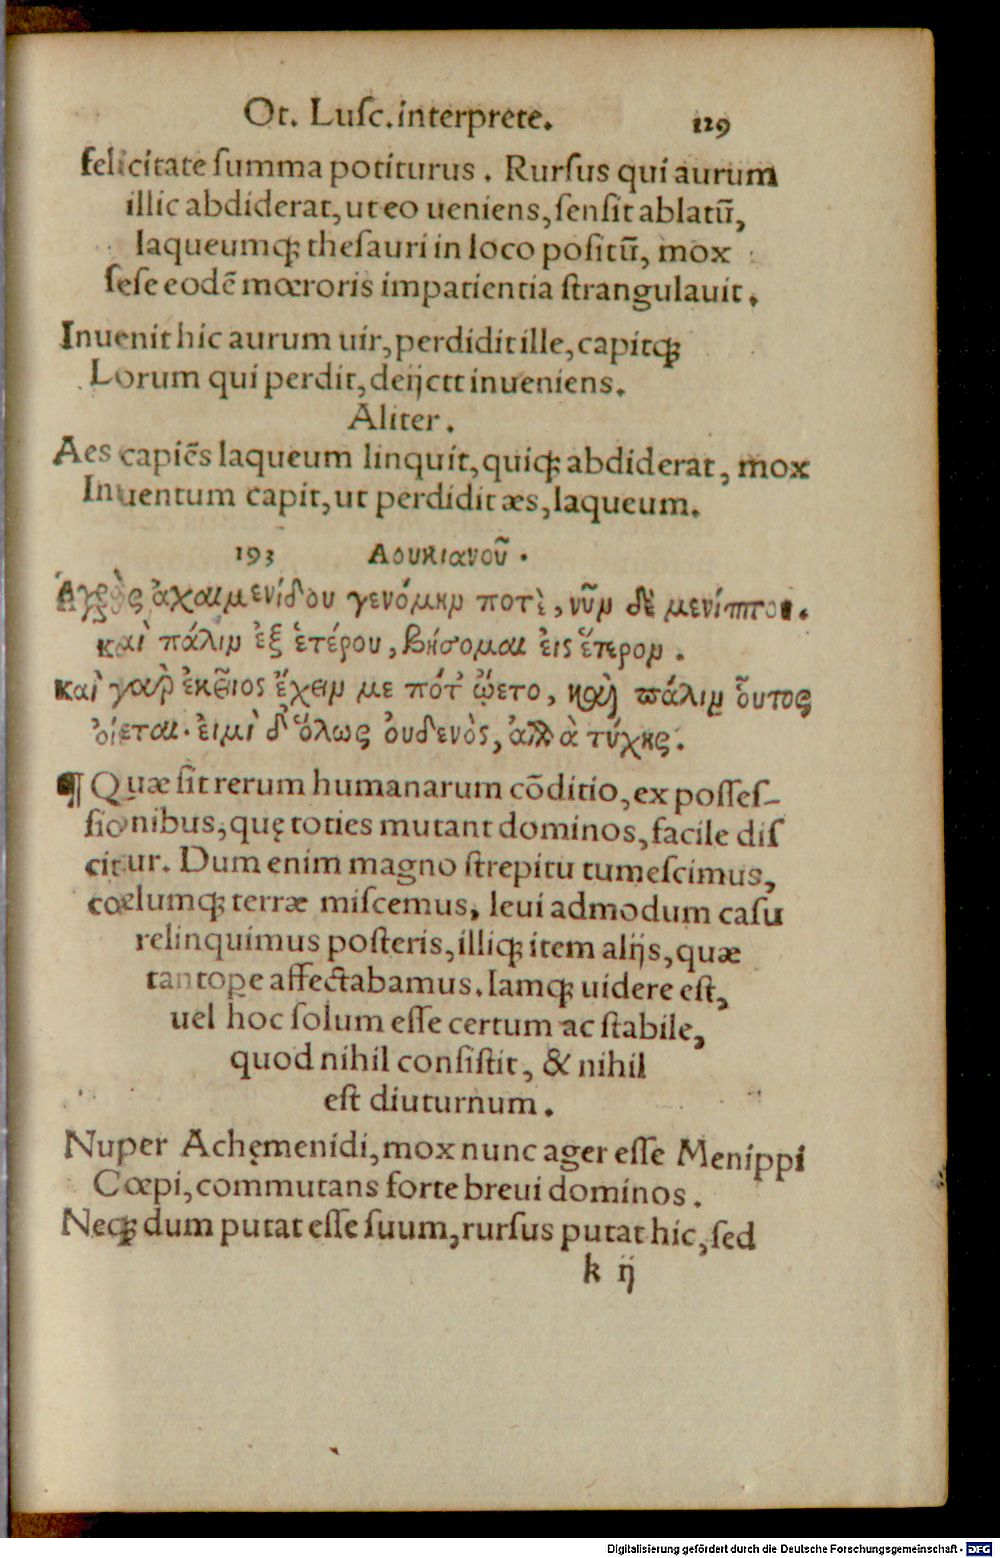 Ot. Luſc. interprete. 129
felicitate ſumma potiturus. Rurſus qui aurum
illic abdiderat, ut eo ueniens, ſenſit ablatū,
laqueumqꝫ theſauri in loco poſitū, mox
ſeſe eodē mœroris impatientia ſtrangulauit.
Inuenit hic aurum uir, perdidit ille, capitqꝫ
Lorum qui perdit, deijcit inueniens.
Aliter.
Aes capiēs laqueum linquit, quiqꝫ abdiderat, mox
Inuentum capit, ut perdidit æs, laqueum.
193 Λουκιανοῦ.
Ἀγρὸς ἀχαιμενίδου γενόμην ποτὶ, νῦν δὲ μενίππου.
καὶ πάλιν ἐξ ἑτέρου, βήσομαι ἐις ἕτερον.
καὶ γαὺρ ἐκεῖιος ἔχειν με πότ' ᾤετο, καὶ πάλιν οὗτος
ὀίεται. ἐιμὶ δ' ὅλως ὀυδενὸς, ἀλλὰ τύχης.
¶ Quæ ſit rerum humanarum cōditio, ex poſſeſ-
ſionibus, quę toties mutant dominos, facile diſ
citur. Dum enim magno ſtrepitu tumeſcimus,
cœlumqꝫ terræ miſcemus, leui admodum caſu
relinquimus poſteris, illiqꝫ item alijs, quæ
tantope affectabamus. Iamqꝫ uidere eſt,
uel hoc ſolum eſſe certum ac ſtabile,
quod nihil conſiſtit, & nihil
eſt diuturnum.
Nuper Achęmenidi, mox nunc ager eſſe Menippi
Cœpi, commutans forte breui dominos.
Neqꝫ dum putat eſſe ſuum, rurſus putat hic, ſed
k ij
Digitalisierung gefördert durch die Deutsche Forschungsgemeinschaft - DFG